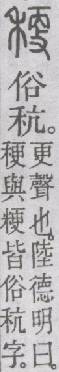 稉
俗秔。
更聲也。陸德明曰。
稉與粳皆俗秔字。